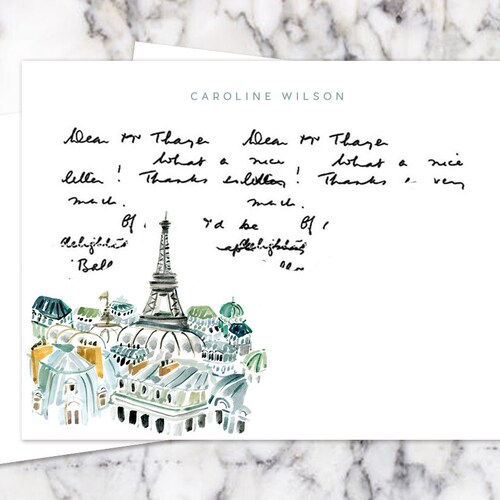 CAROLINE WILSON
Dear Mr Thayer Dear Mr Thayer
What a nice What a nice
letter! Thanks letter! Thanks very
much. much.
I'd be
delighted delighted